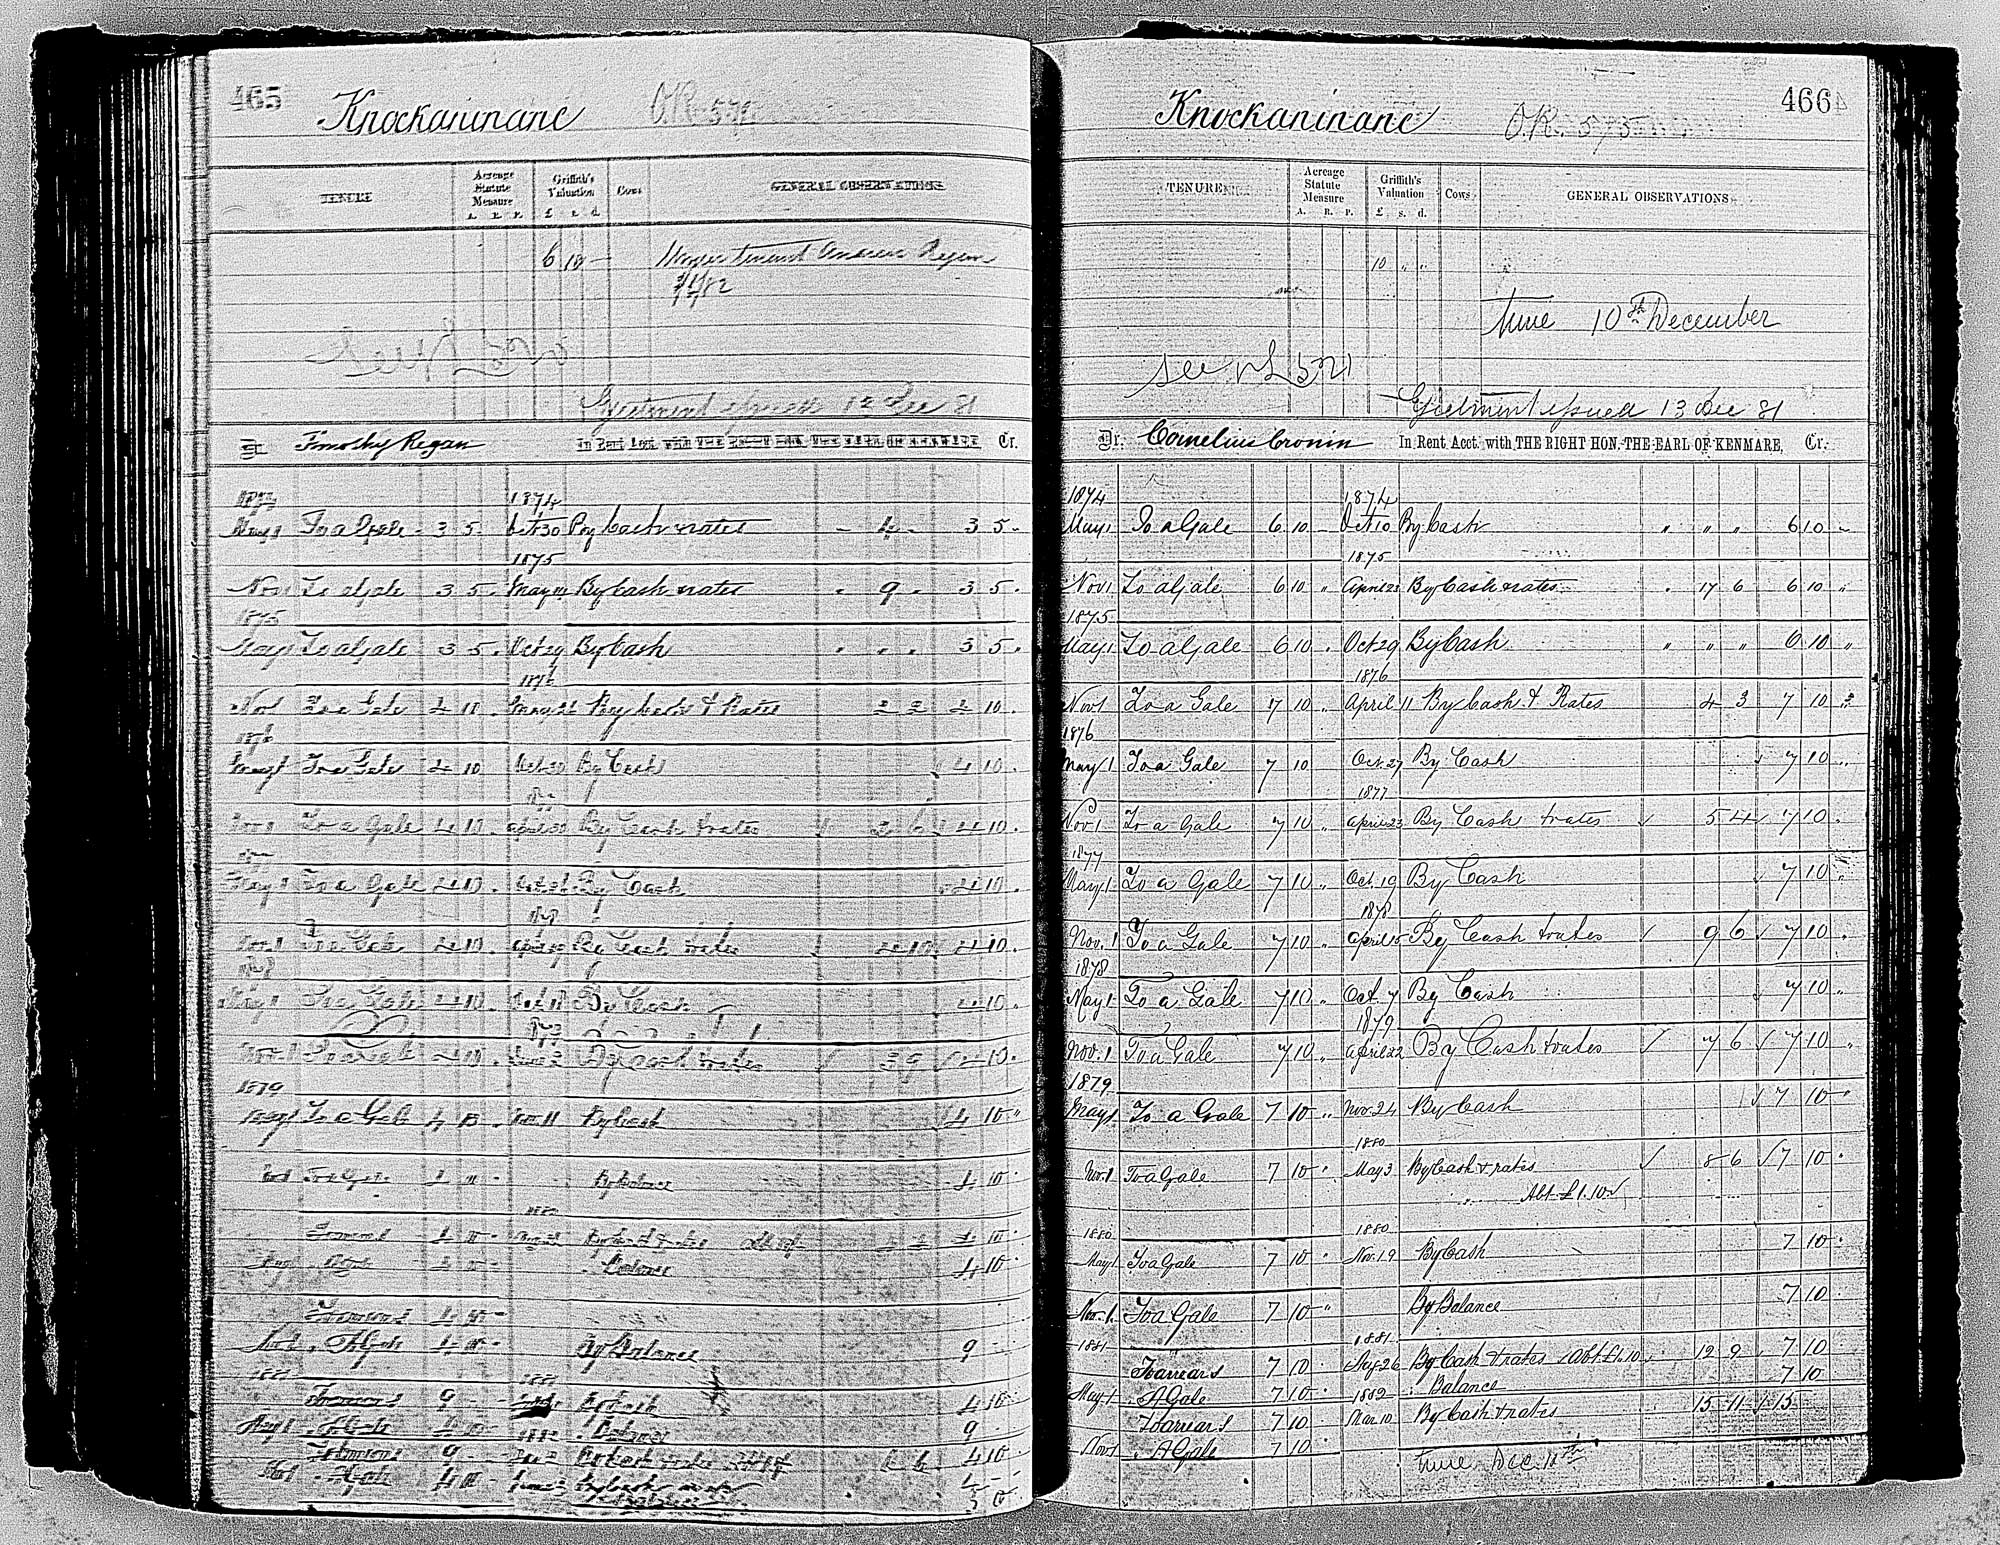 465
Knockaninane
O.R. 574
TENURE
Acreage Statute Measure
A. R. P.
Griffith's Valuation
£ s. d.
Cows
GENERAL OBSERVATIONS
6 10 -
tenant Andrew Regan
Ejectment issued 12 Dec 81
Dr. Timothy Regan In Rent Acct. with THE RIGHT HON. THE EARL OF KENMARE, Cr.
1874
May 1 To a Gale 3 5 - Oct 30 By Cash & rates - 4 - 3 5 -
1875
Nov 1 To a Gale 3 5 . May By Cash & rates . 9 . 3 5 .
1875
May 1 To a Gale 3 5 . Oct 29 By Cash . . . 3 5 .
1876
Nov 1 To a Gale 4 10 . May By Cash & Rates 2 2 4 10 .
1876
May 1 To a Gale 4 10 Oct By Cash 4 10 .
1877
Nov 1 To a Gale 4 10 . April By Cash & rates 2 6 4 10 .
1877
May 1 To a Gale 4 10 . Oct By Cash 4 10 .
1878
Nov. 1 To a Gale 4 10 . April By Cash & rates 4 10 .
1878
May 1 To a Gale 4 10 . By Cash 4 10 .
1879
Nov. 1 To a Gale 4 10 . June By Cash & rates 3 9 4 10 .
1879
May 1 To a Gale 4 10 . Nov. 11 By Cash 4 10 "
Nov 1 To a Gale 4 10 - By Balance 4 10 .
1880
To arrears 4 10 - By Cash & rates 4 10 .
May 1 . A Gale 4 10 - . Balance 4 10
To arrears 4 10 -
Nov 1 . A Gale 4 10 - By Balance 9 - -
1881 1881
To arrears 9 - - By Cash 4 10 -
May 1 . A Gale 4 10 . Balance 9
1882
To arrears 9 - By Cash & rates 4 10
Nov 1 . A Gale 4 10 - By Cash
466
Knockaninane
O.R. 575
TENURE
Acreage Statute Measure
A. R. P.
Griffith's Valuation
£ s. d.
Cows
GENERAL OBSERVATIONS
10 " "
time 10th December
see 521
Ejectment issued 13 Dec 81
Dr. Cornelius Cronin In Rent Acct. with THE RIGHT HON. THE EARL OF KENMARE, Cr.
1874 1874
May 1 To a Gale 6 10 - Oct 10 By Cash " " " 6 10 -
1875
Nov 1 To a Gale 6 10 " April 23 By Cash & rates . 17 6 6 10 "
1875
May 1 To a Gale 6 10 . Oct 29 By Cash " " " 6 10 "
1876
Nov 1 To a Gale 7 10 " April 11 By Cash & Rates 4 3 7 10
1876
May 1 To a Gale 7 10 Oct. 27 By Cash 7 10 "
1877
Nov 1 To a Gale 7 10 " April 23 By Cash & rates 5 4 7 10 .
1877
May 1 To a Gale 7 10 " Oct. 19 By Cash 7 10 "
1878
Nov. 1 To a Gale 7 10 " April 15 By Cash & rates 9 6 7 10 .
1878
May 1 To a Gale 7 10 " Oct. 7 By Cash 7 10 "
1879
Nov. 1 To a Gale 7 10 " April 22 By Cash & rates 7 6 7 10 "
1879
May 1 To a Gale 7 10 " Nov. 24 By Cash 7 10 "
1880
Nov. 1 To a Gale 7 10 " May 3 By Cash & rates 8 6 7 10 .
" Abt. £1.10
1880 1880
May 1 To a Gale 7 10 " Nov. 19 By Cash 7 10 .
Nov. 1. To a Gale 7 10 " By Balance 7 10 .
1881 1881
To arrears 7 10 . Aug 26 By Cash & rates Abt. £1.10 12 9 7 10
May 1 . A Gale 7 10 . 1882 . Balance 7 10
To arrears 7 10 Mar 10 By Cash & rates 15 11 15
Nov 1 . A Gale 7 10 time Dec. 10th